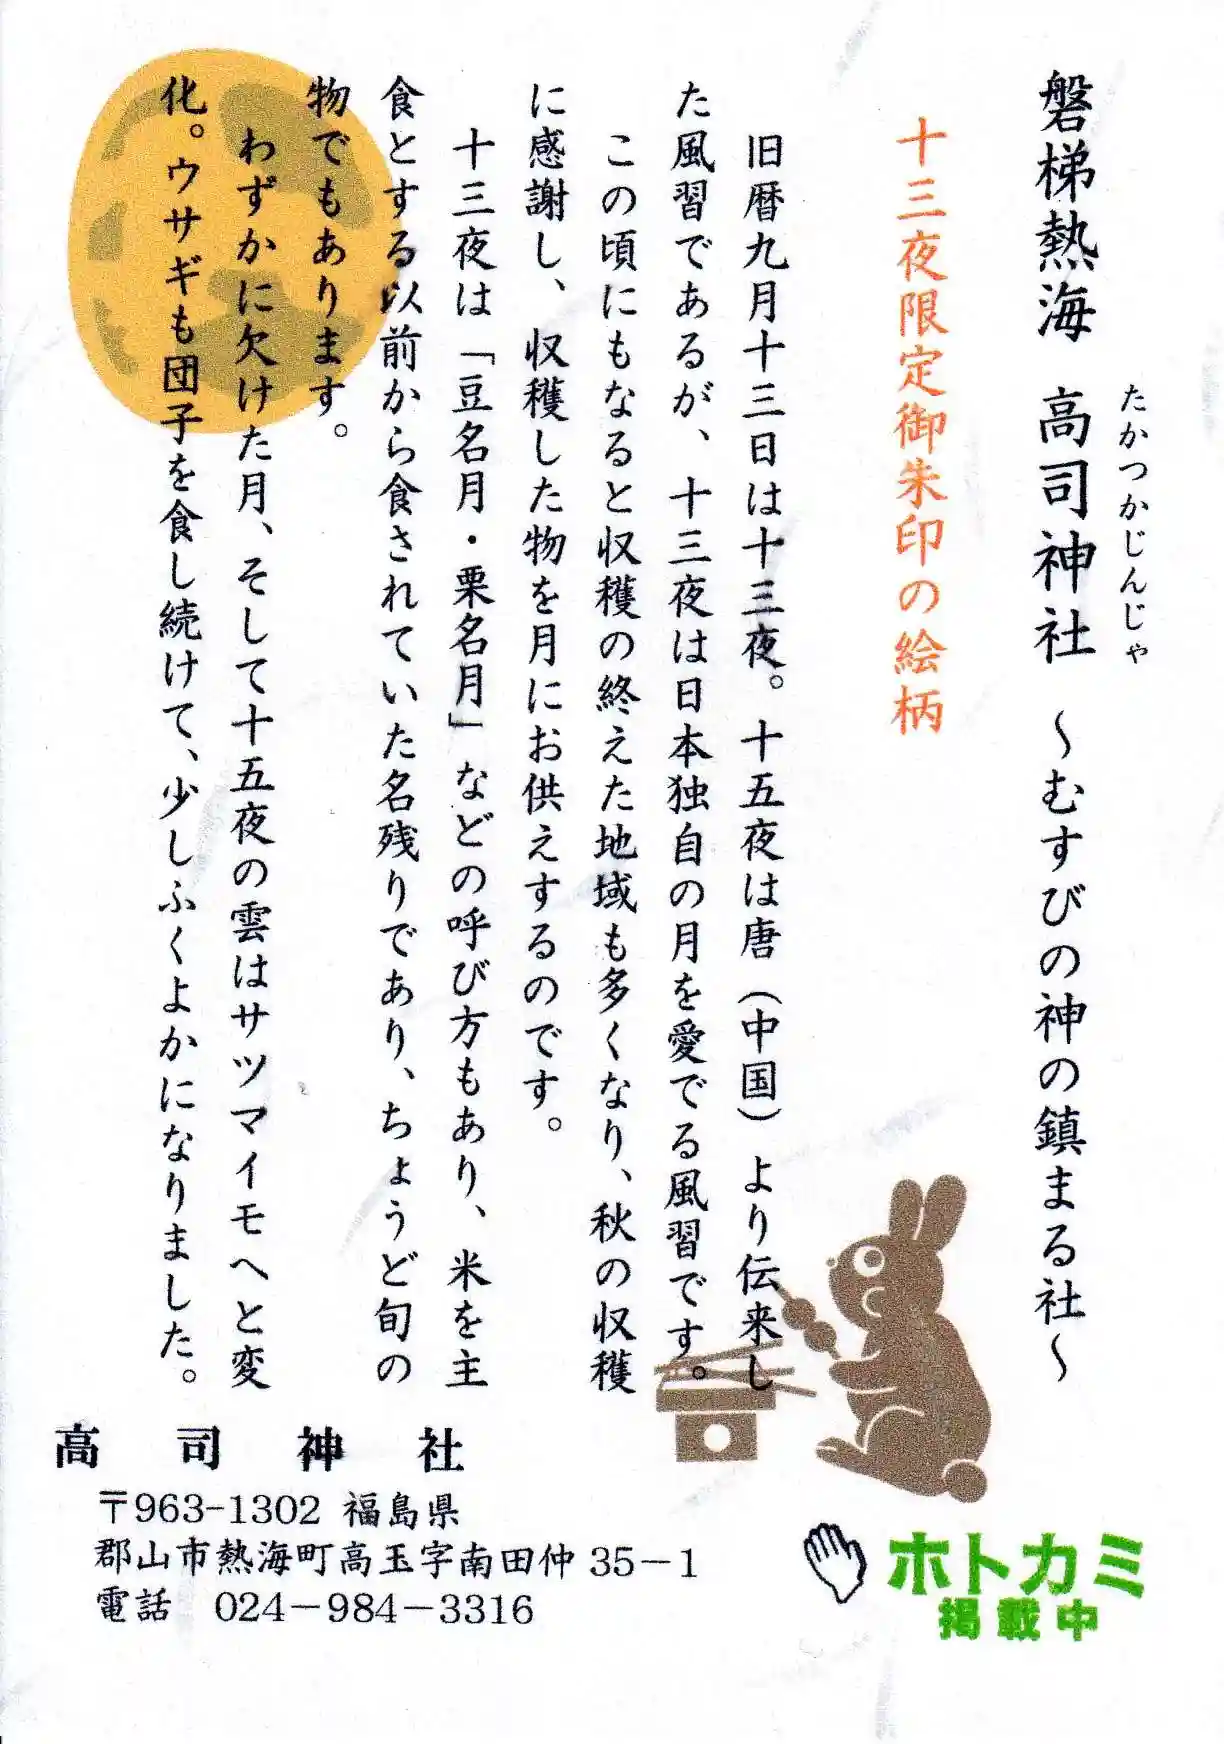 磐梯熱海 高司神社 ～むすびの神の鎮まる社～
たかつかじんじゃ
十三夜限定御朱印の絵柄
旧暦九月十三日は十三夜。十五夜は唐（中国）より伝来し
た風習であるが、十三夜は日本独自の月を愛でる風習です。
この頃にもなると収穫の終えた地域も多くなり、秋の収穫
に感謝し、収穫した物を月にお供えするのです。
十三夜は「豆名月・栗名月」などの呼び方もあり、米を主
食とする以前から食されていた名残りであり、ちょうど旬の
物でもあります。
わずかに欠けた月、そして十五夜の雲はサツマイモへと変
化。ウサギも団子を食し続けて、少しふくよかになりました。
高司神社
〒963-1302 福島県
郡山市熱海町高玉字南田仲35－1
電話 024－984－3316
ホトカミ
掲載中